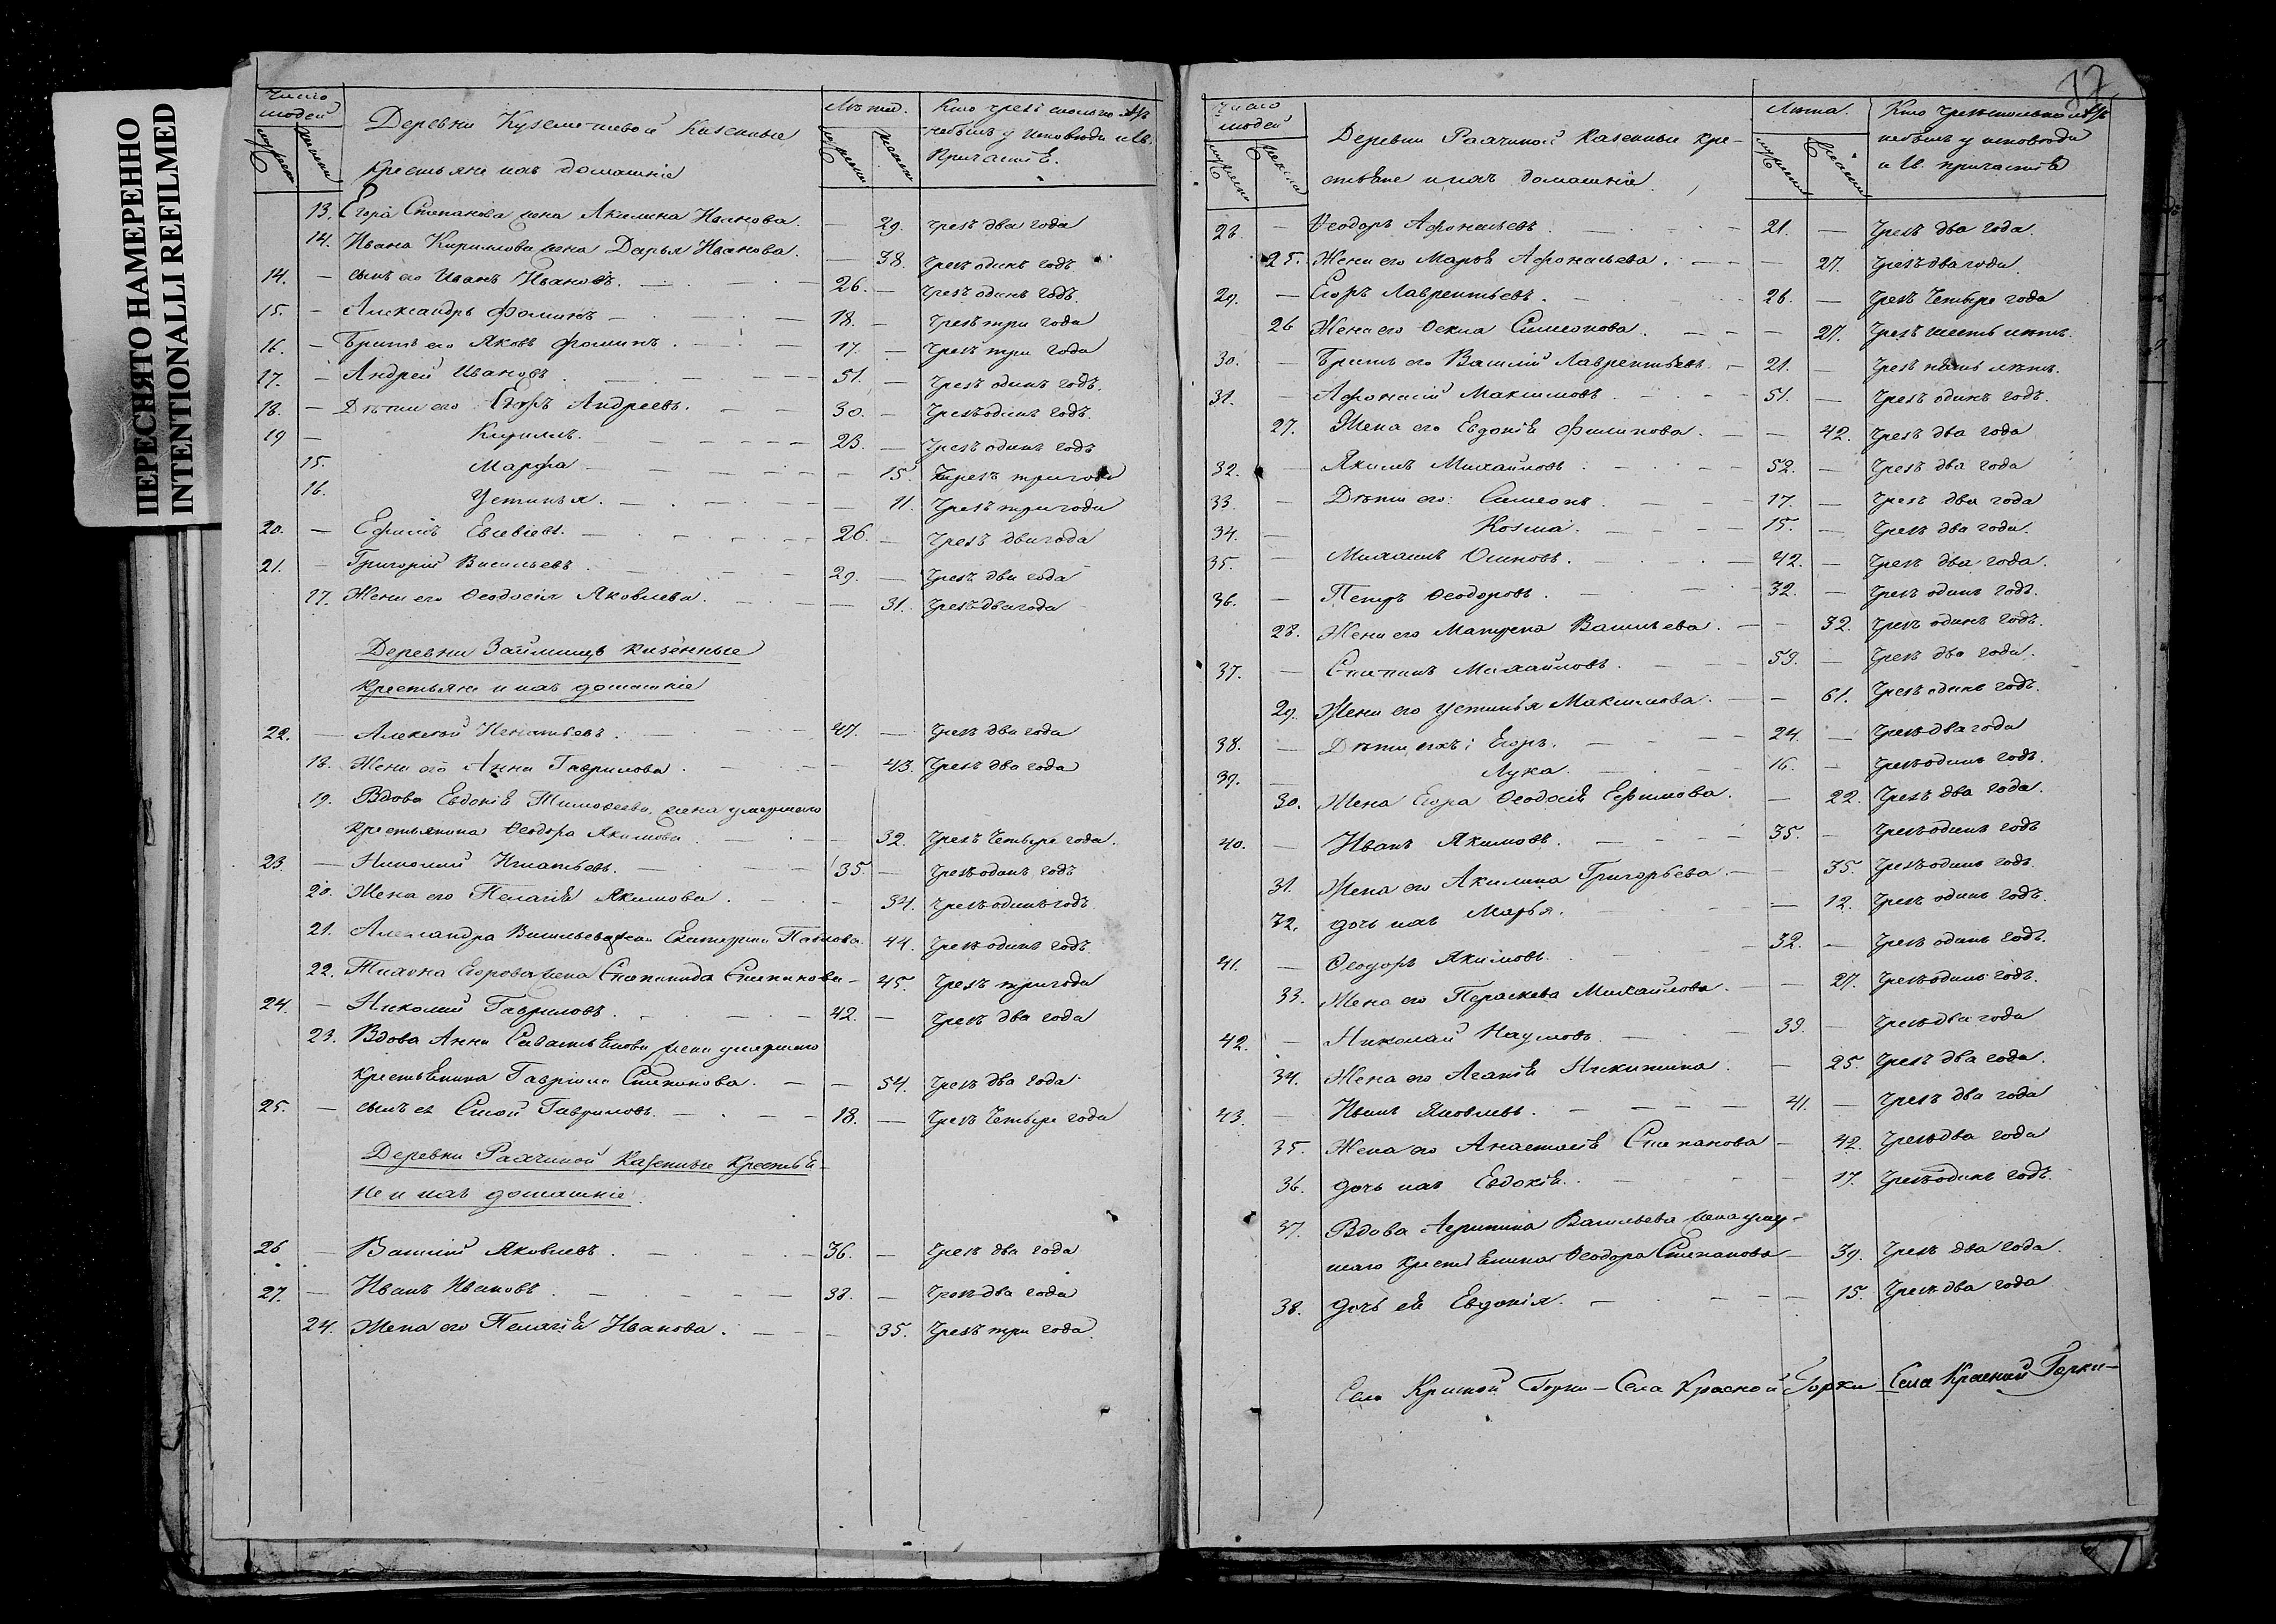 ПЕРЕСНЯТО НАМЕРЕННО
INTENTIONALLI REFILMED
Число людей
мужеска
женска
Деревни казенные
крестьяне и ихъ домашніе
Лѣта.
мужеска
женска
Кто чрезъ сколько лѣтъ
не былъ у исповѣди и Св.
Причастія.
13. Егора Степанова жена Акилина Иванова. — 29. чрезъ два года
14. Ивана Кирилова жена Дарья Иванова. — 38. чрезъ одинъ годъ
14. — сынъ его Иванъ Ивановъ. 26. — чрезъ одинъ годъ.
15. — Александръ Фоминъ — 18. — чрезъ три года
16. — Братъ его Яковъ Фоминъ. 17. — чрезъ три года
17. — Андрей Ивановъ. 51. — чрезъ одинъ годъ.
18. — Дѣти его Егоръ Андреевъ. 30. — чрезъ одинъ годъ.
19 — Кириллъ. 23. — чрезъ одинъ годъ
15. Марфа — 15. чрезъ три года
16. Устинья. — 11. чрезъ три года
20. — Ефимъ 26. — чрезъ два года
21. — Григорій Васильевъ. 29. — чрезъ два года
17. Жена его Ѳеодосія Яковлева. — 31. чрезъ два года
Деревни Займищъ казенные
крестьяне и ихъ домашніе
22. — Алексѣй Игнатьевъ. 47. — чрезъ два года
18. Жена его Анна Гаврилова. — 43. чрезъ два года
19. Вдова Евдокія Тимоѳеева, жена умершаго
крестьянина Ѳеодора Якимова. — 32. чрезъ четыре года.
23. — Николай Игнатьевъ. 35. — чрезъ одинъ годъ
20. Жена его Пелагія Якимова. — 34. чрезъ одинъ годъ
21. Александра Васильева жена Екатерина Павлова. 44. чрезъ одинъ годъ
22. Тихона Егорова жена Степанида Степанова — 45. чрезъ три года
24. — Николай Гавриловъ. 42. — чрезъ два года
23. Вдова Анна Савастьянова жена умершаго
крестьянина Гавріила Степанова. — 54. чрезъ два года.
25. — сынъ ея Гавриловъ. 18. — чрезъ четыре года
Деревни Рахчиной казенные крестья-
не и ихъ домашніе.
26 — Василій Яковлевъ. 36. — чрезъ два года
27. — Иванъ Ивановъ. 38. — чрезъ два года
24. Жена его Пелагія Иванова. — 35. чрезъ три года.
37
Число людей
мужеска
женска
Деревни Рахчиной казенные кре-
стьяне и ихъ домашніе.
Лѣта.
мужеска
женска
Кто чрезъ сколько лѣтъ
не былъ у исповѣди
и Св. причастія
28. — Ѳеодоръ Афонасьевъ. 21. — чрезъ два года.
25. Жена его Марѳа Афонасьева. — 27. чрезъ два года.
29. — Егоръ Лаврентьевъ. 26. — чрезъ четыре года
26 Жена его Ѳекла Симеонова. — 27. чрезъ шесть лѣтъ.
30. — Братъ его Василій Лаврентьевъ. 21. — чрезъ пять лѣтъ.
31. — Афонасій Максимовъ. 51. — чрезъ одинъ годъ.
27. Жена его Евдокія Филипова. — 42. чрезъ два года
32. — Якимъ Михайловъ. 52. — чрезъ два года
33 — Дѣти его: Симеонъ. 17. — чрезъ два года
34. — Козма. 15. — чрезъ два года.
35. — Михаилъ Осиповъ. 42. — чрезъ два года.
36. — Петръ Ѳеодоровъ. 32. — чрезъ одинъ годъ.
28. Жена его Матрена Васильева. — 32. чрезъ одинъ годъ.
37. — Степанъ Михайловъ. 59. — чрезъ два года.
29. Жена его Устинья Максимова. — 61. чрезъ одинъ годъ.
38. — Дѣти ихъ: Егоръ. 24. — чрезъ два года
39. — Лука. 16. — чрезъ одинъ годъ.
30. Жена Егора Ѳеодосія Ефимова. — 22. чрезъ два года.
40. — Иванъ Якимовъ. 35. — чрезъ одинъ годъ
31. Жена его Акилина Григорьева. — 35. чрезъ одинъ годъ.
32. дочь ихъ Марья. — 12. чрезъ одинъ годъ.
41. — Ѳеодоръ Якимовъ. 32. — чрезъ одинъ годъ.
33. Жена его Параскева Михайлова. — 27. чрезъ одинъ годъ.
42. — Николай Наумовъ. 39. — чрезъ два года
34. Жена его Агапія Никитина. — 25. чрезъ два года.
43. — Иванъ Яковлевъ. 41. — чрезъ два года
35. Жена его Анастасія Степанова — 42. чрезъ два года
36. дочь ихъ Евдокія. — 17. чрезъ одинъ годъ.
37. Вдова Агрипина Васильева жена умер-
шаго крестьянина Ѳеодора Степанова — 39. чрезъ два года.
38. дочь ея Евдокія. — 15. чрезъ два года
Села Красной Горки — Села Красной Горки Села Красной Горки —